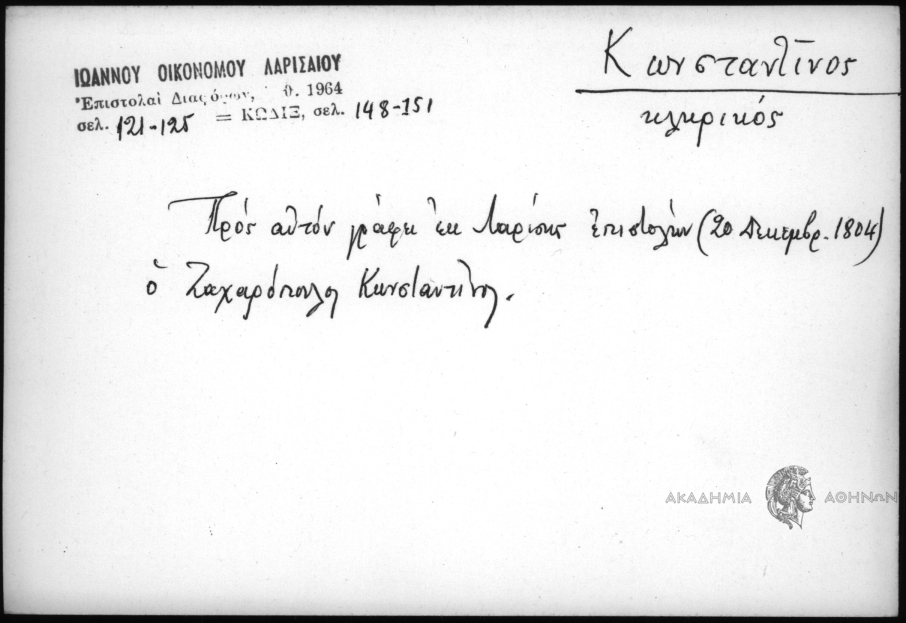 ΙΩΑΝΝΟΥ ΟΙΚΟΝΟΜΟΥ ΛΑΡΙΣΑΙΟΥ
Ἐπιστολαὶ Διαφόρων, 1964
σελ. 121-125 = ΚΩΔΙΞ, σελ. 148-151
Κωνσταντῖνος
κληρικός
Πρός αὐτόν γράφει ἐκ Λαρίσης ἐπιστολήν (20 Δεκεμβρ. 1804)
ὁ Ζαχαρόπουλος Κωνσταντῖνος.
ΑΚΑΔΗΜΙΑ ΑΘΗΝΩΝ